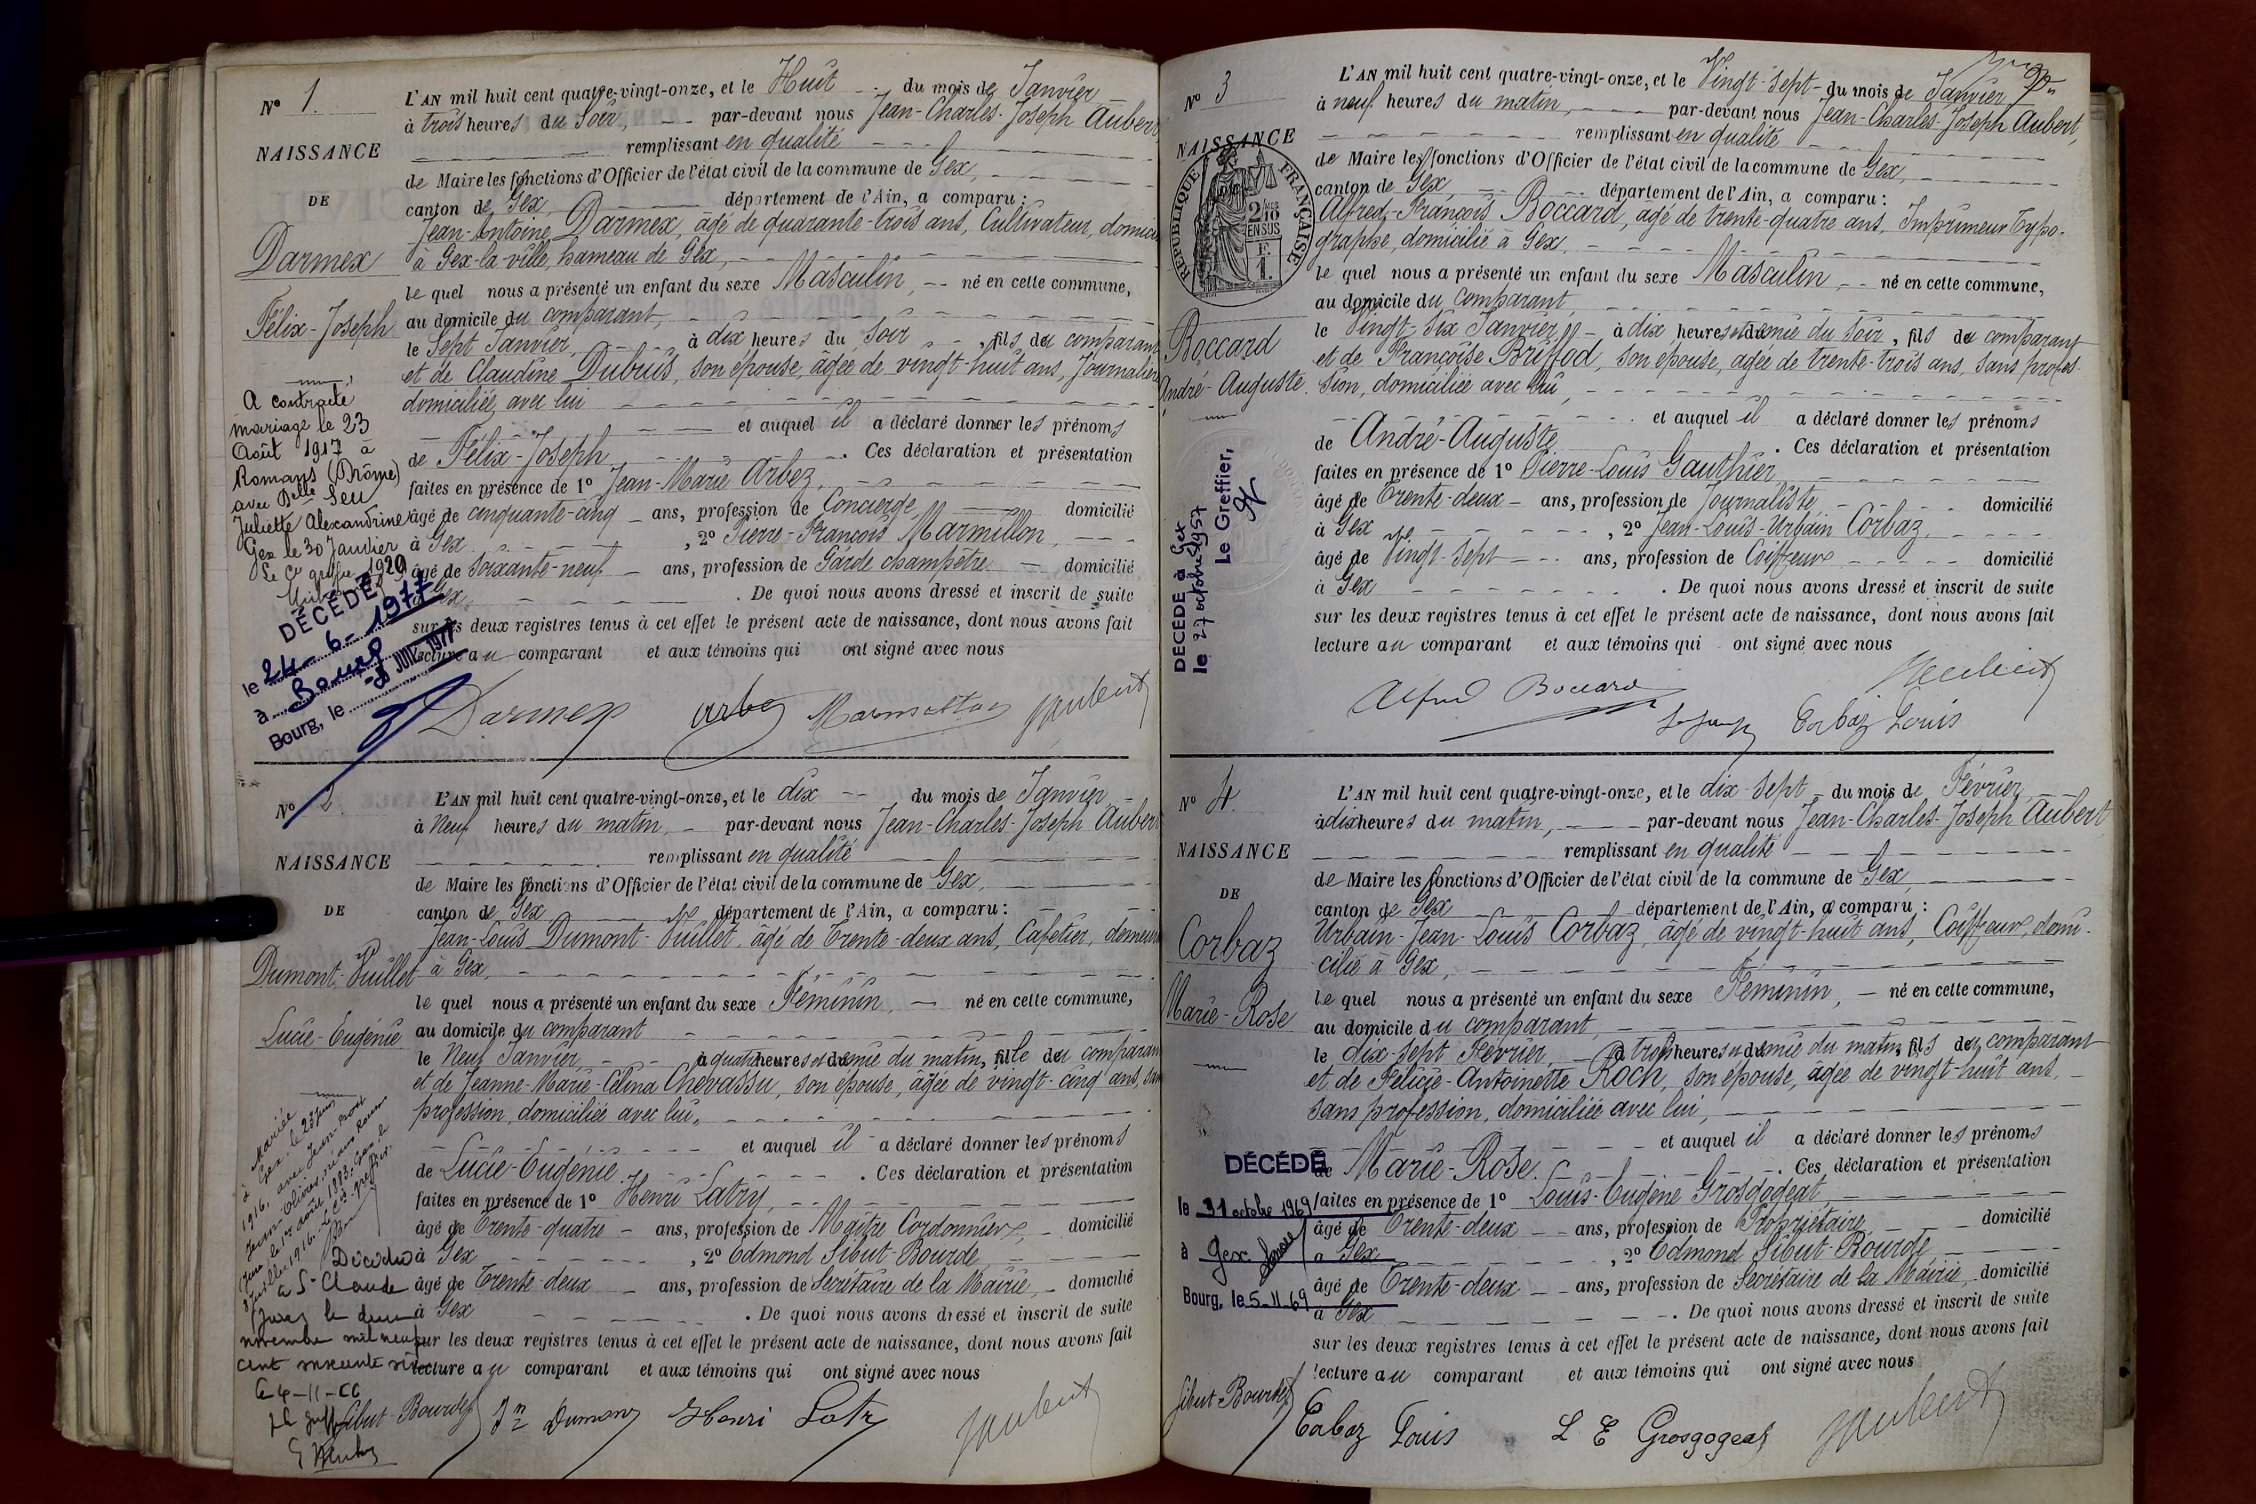 N° 1.
NAISSANCE
DE
Darmex
Félix-Joseph
A contracté
mariage le 23
Août 1917 à
Romans (Drôme)
avec Delle Seu
Juliette Alexandrine
Gex le 30 Janvier
1920
DÉCÉDÉ
le 24-6-1977
à Bourg
Bourg, le JUIL. 1977
L'AN mil huit cent quatre-vingt-onze, et le Huit du mois de Janvier
à trois heures du Soir, par-devant nous Jean-Charles-Joseph Aubert
remplissant en qualité
de Maire les fonctions d'Officier de l'état civil de la commune de Gex,
canton de Gex, département de l'Ain, a comparu :
Jean-Antoine Darmex, âgé de quarante-trois ans, Cultivateur, domici
à Gex-la-ville, hameau de Gex,
le quel nous a présenté un enfant du sexe Masculin, né en cette commune,
au domicile du comparant,
le Sept Janvier, à dix heures du Soir, fils du comparant
et de Claudine Dubuis, son épouse, âgée de vingt-huit ans, Journalière
domiciliée avec lui
et auquel il a déclaré donner les prénoms
de Félix-Joseph. Ces déclaration et présentation
faites en présence de 1° Jean-Marie Arbez,
âgé de cinquante-cinq ans, profession de Concierge domicilié
à Gex, 2° Pierre-François Marmillon,
âgé de soixante-neuf ans, profession de Garde champêtre domicilié
à Gex. De quoi nous avons dressé et inscrit de suite
sur les deux registres tenus à cet effet le présent acte de naissance, dont nous avons fait
lecture au comparant et aux témoins qui ont signé avec nous
Darmex Arbez Marmillon Jaubert
N° 2.
NAISSANCE
DE
Dumont-Vuillet
Lucie-Eugénie
Mariée
à Gex le 23 juin
1916, avec Jean
Décédée
à St Claude
(Jura) le deux
novembre mil neuf
cent soixante six
Le 4-11-66
L'AN mil huit cent quatre-vingt-onze, et le dix du mois de Janvier
à Neuf heures du matin, par-devant nous Jean-Charles-Joseph Aubert
remplissant en qualité
de Maire les fonctions d'Officier de l'état civil de la commune de Gex,
canton de Gex département de l'Ain, a comparu :
Jean-Louis Dumont-Vuillet, âgé de Trente-deux ans, Cafetier, demeur
à Gex,
le quel nous a présenté un enfant du sexe Féminin, né en cette commune,
au domicile du comparant
le Neuf Janvier, à quatre heures et demie du matin, fille du comparant
et de Jeanne-Marie-Célina Chevassu, son épouse, âgée de vingt-cinq ans, san
profession, domiciliée avec lui,
et auquel il a déclaré donner les prénoms
de Lucie-Eugénie. Ces déclaration et présentation
faites en présence de 1° Henri Latry,
âgé de Trente-quatre ans, profession de Maître Cordonnier, domicilié
à Gex, 2° Edmond Sibut-Bourde,
âgé de Trente-deux ans, profession de Secrétaire de la Mairie, domicilié
à Gex. De quoi nous avons dressé et inscrit de suite
sur les deux registres tenus à cet effet le présent acte de naissance, dont nous avons fait
lecture au comparant et aux témoins qui ont signé avec nous
Sibut-Bourde Jn Dumont Henri Latry Jaubert
N° 3
NAISSANCE
RÉPUBLIQUE FRANÇAISE
2/10 EN SUS
F. 1.
Boccard
André-Auguste.
DÉCÉDÉ à Gex
le 27 octobre 1957
Le Greffier,
L'AN mil huit cent quatre-vingt-onze, et le Vingt-Sept du mois de Janvier
à neuf heures du matin, par-devant nous Jean-Charles-Joseph Aubert,
remplissant en qualité
de Maire les fonctions d'Officier de l'état civil de la commune de Gex,
canton de Gex, département de l'Ain, a comparu :
Alfred-François Boccard, âgé de trente-quatre ans, Imprimeur Typo-
graphe, domicilié à Gex.
le quel nous a présenté un enfant du sexe Masculin, né en cette commune,
au domicile du comparant,
le Vingt-Six Janvier, à dix heures et demie du Soir, fils du comparant
et de Françoise Briffod, son épouse, agée de trente-trois ans, sans profes-
sion, domiciliée avec lui,
et auquel il a déclaré donner les prénoms
de André-Auguste. Ces déclaration et présentation
faites en présence de 1° Pierre-Louis Gauthier
âgé de Trente-deux ans, profession de Journaliste domicilié
à Gex, 2° Jean-Louis-Urbain Corbaz,
âgé de Vingt-Sept ans, profession de Coiffeur domicilié
à Gex. De quoi nous avons dressé et inscrit de suite
sur les deux registres tenus à cet effet le présent acte de naissance, dont nous avons fait
lecture au comparant et aux témoins qui ont signé avec nous
Alfred Boccard Jaubert
Corbaz Louis
N° 4.
NAISSANCE
DE
Corbaz
Marie-Rose
DÉCÉDÉ
le 31 octobre 1969
à Gex
Bourg, le 5-11-69
L'AN mil huit cent quatre-vingt-onze, et le dix-Sept du mois de Février
à dix heures du matin, par-devant nous Jean-Charles-Joseph Aubert
remplissant en qualité
de Maire les fonctions d'Officier de l'état civil de la commune de Gex,
canton de Gex département de l'Ain, a comparu :
Urbain-Jean-Louis Corbaz, âgé de vingt-huit ans, Coiffeur, domi-
cilié à Gex,
le quel nous a présenté un enfant du sexe Féminin, né en cette commune,
au domicile du comparant,
le dix-Sept Février, à trois heures et demie du matin, fils du comparant
et de Félicie-Antoinette Roch, son épouse, agée de vingt-huit ans,
sans profession, domiciliée avec lui,
et auquel il a déclaré donner les prénoms
de Marie-Rose. Ces déclaration et présentation
faites en présence de 1° Louis-Eugène Grosgogeat,
âgé de Trente-deux ans, profession de Propriétaire domicilié
à Gex, 2° Edmond Sibut-Bourde,
âgé de Trente-deux ans, profession de Secrétaire de la Mairie, domicilié
à Gex. De quoi nous avons dressé et inscrit de suite
sur les deux registres tenus à cet effet le présent acte de naissance, dont nous avons fait
lecture au comparant et aux témoins qui ont signé avec nous
Sibut-Bourde Corbaz Louis L E Grosgogeat Jaubert